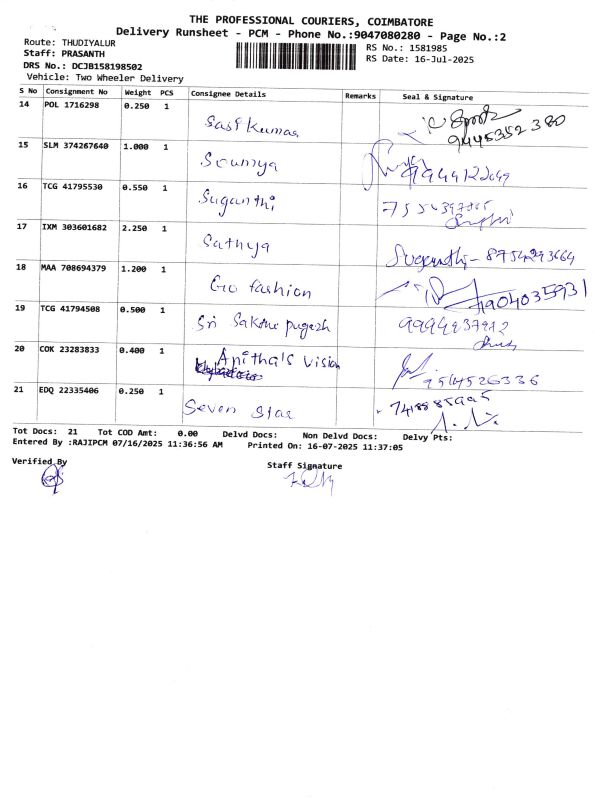 THE PROFESSIONAL COURIERS, COIMBATORE
Delivery Runsheet - PCM - Phone No.:9047080280 - Page No.:2
Route: THUDIYALUR
RS No.: 1581985
Staff: PRASANTH
RS Date: 16-Jul-2025
DRS No.: DCJB158198502
Vehicle: Two Wheeler Delivery
S No Consignment No Weight PCS Consignee Details Remarks Seal & Signature
14 POL 1716298 0.250 1
Sasi kumar 9445352380
15 SLM 374267640 1.000 1
Soumya
16 TCG 41795530 0.550 1
Suganthi
17 IXM 303601682 2.250 1
Sathya Suganthi - 8754293664
18 MAA 708694379 1.200 1
Go fashion 7904035931
19 TCG 41794508 0.500 1
Sri pugazh 9994437912
20 COK 23283833 0.400 1
Anitha's Vision
9514526336
21 EDQ 22335406 0.250 1
Seven Star 7418885995
Tot Docs: 21 Tot COD Amt: 0.00 Delvd Docs: Non Delvd Docs: Delvy Pts:
Entered By :RAJIPCM 07/16/2025 11:36:56 AM Printed On: 16-07-2025 11:37:05
Verified By
Staff Signature